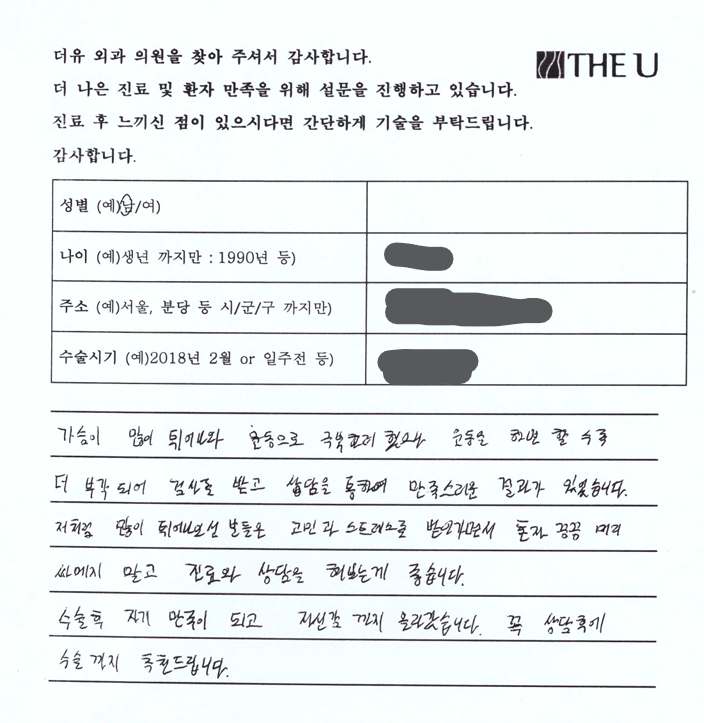 더유 외과 의원을 찾아 주셔서 감사합니다.
THE U
더 나은 진료 및 환자 만족을 위해 설문을 진행하고 있습니다.
진료 후 느끼신 점이 있으시다면 간단하게 기술을 부탁드립니다.
감사합니다.
성별 (예)남/여)
나이 (예)생년 까지만 : 1990년 등)
주소 (예)서울, 분당 등 시/군/구 까지만)
수술시기 (예)2018년 2월 or 일주전 등)
가슴이 많이 튀어나와 운동으로 극복하려 했으나 운동을 하면 할 수록
더 부각되어 검사를 받고 상담을 통하여 만족스러운 결과가 있었습니다.
저처럼 많이 튀어나오신 분들은 고민과 스트레스를 받으면서 혼자 끙끙 머리
싸메지 말고 진료와 상담을 해보는게 좋습니다.
수술후 자기 만족이 되고 자신감 까지 올라갔습니다. 꼭 상담후에
수술 까지 추천드립니다.